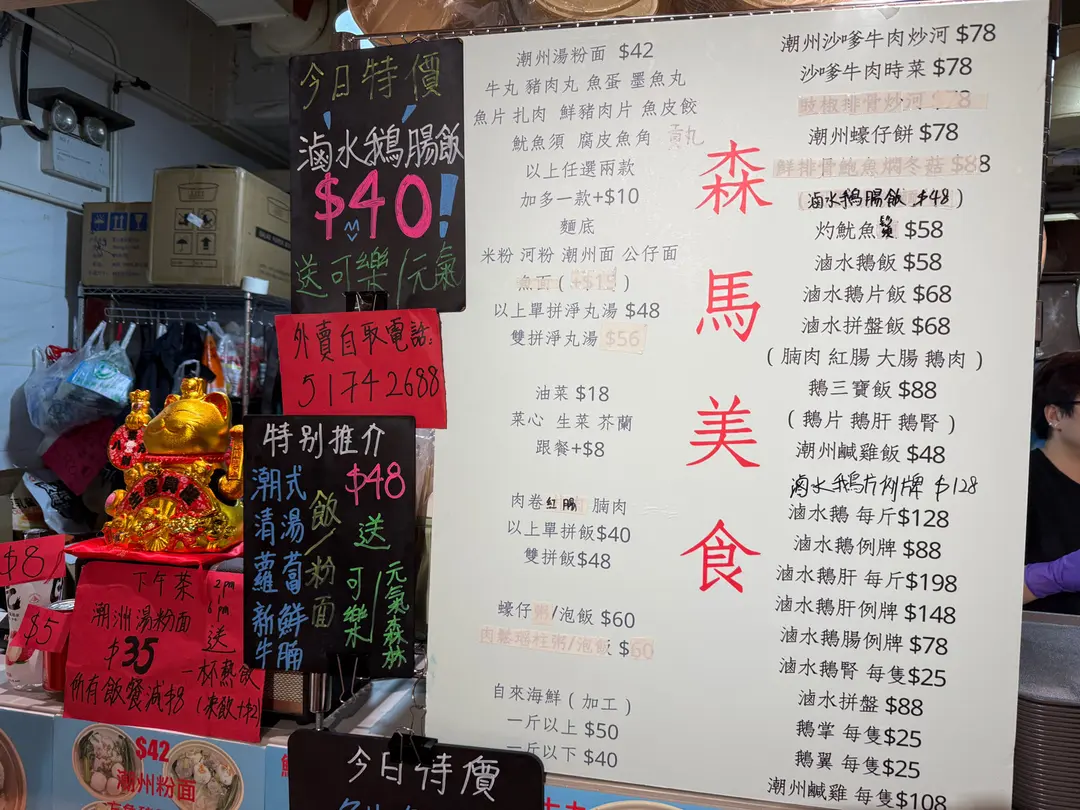 今日特價
滷水鵝腸飯
$40!
送可樂/元氣
外賣自取電話:
51742688
特別推介
潮式清湯蘿蔔新鮮牛腩
飯/粉面
$48
送
可樂/元氣森林
$8
$5
下午茶 2pm 6pm
潮洲湯粉面
$35
送一杯熱飲
(凍飲+$2
所有飯餐減$8
$42
潮州粉面
今日特價
潮州湯粉面 $42
牛丸 豬肉丸 魚蛋 墨魚丸
魚片 扎肉 鮮豬肉片 魚皮餃
魷魚須 腐皮魚角 貢丸
以上任選兩款
加多一款+$10
麵底
米粉 河粉 潮州面 公仔面
魚面 ( +$15 )
以上單拼淨丸湯 $48
雙拼淨丸湯 $56
油菜 $18
菜心 生菜 芥蘭
跟餐+$8
肉卷 紅腸 腩肉
以上單拼飯$40
雙拼飯$48
蠔仔粥/泡飯 $60
肉鬆瑤柱粥/泡飯 $60
自來海鮮 ( 加工 )
一斤以上 $50
一斤以下 $40
森馬美食
潮州沙嗲牛肉炒河 $78
沙嗲牛肉時菜 $78
豉椒排骨炒河 $78
潮州蠔仔餅 $78
鮮排骨鮑魚燜冬菇 $88
滷水鵝腸飯 $48 )
灼魷魚鬚 $58
滷水鵝飯 $58
滷水鵝片飯 $68
滷水拼盤飯 $68
( 腩肉 紅腸 大腸 鵝肉 )
鵝三寶飯 $88
( 鵝片 鵝肝 鵝腎 )
潮州鹹雞飯 $48
滷水鵝片例牌 $128
滷水鵝 每斤$128
滷水鵝例牌 $88
滷水鵝肝 每斤$198
滷水鵝肝例牌 $148
滷水鵝腸例牌 $78
滷水鵝腎 每隻$25
滷水拼盤 $88
鵝掌 每隻$25
鵝翼 每隻$25
潮州鹹雞 每隻$108